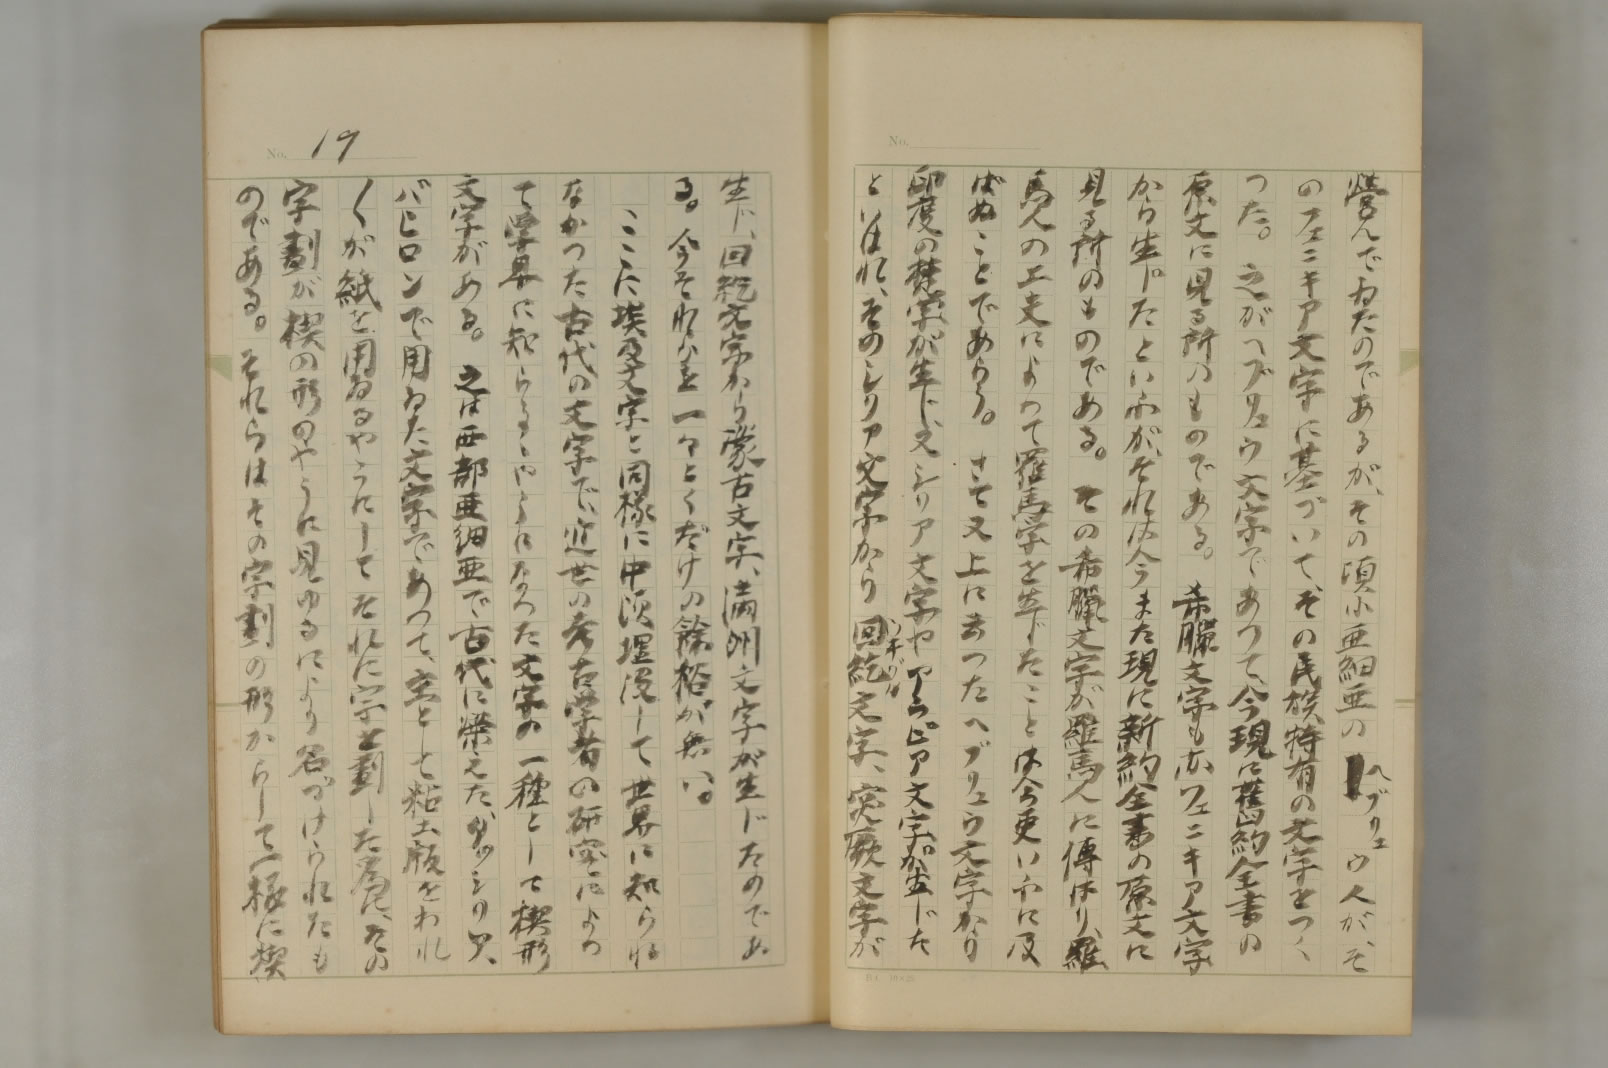 No.
営んでゐたのであるが、その頃小亜細亜のヘブリュウ人が、そ
のフェニキア文字に基づいて、その民族特有の文字をつく
つた。之がヘブリュウ文字であつて、今現に舊約全書の
原文に見る所のものである。希臘文字も亦フェニキア文字
から生じたといふが、それは今また現に新約全書の原文に
見る所のものである。その希臘文字が羅馬人に傳はり、羅
馬人の工夫によつて羅馬字を生じたことは今更いふに及
ばぬことであらう。さて又上に言つたヘブリュウ文字から
印度の梵字が生じ、又シリア文字やアラビア文字が生じた
といはれ、そのシリア文字から回紇文字、突厥文字が
ウイグル
No. 19
生じ、回紇文字から蒙古文字、満州文字が生じたのであ
る。今それらを一々とくだけの餘裕が無い。
ここに埃及文字と同様に中頃埋没して世界に知られ
なかつた古代の文字で、近世の考古学者の研究によつ
て学界に知らるゝやうになつた文字の一種として楔形
文字がある。之は西部亜細亜で古代に栄えたアッシリア、
バビロンで用ゐた文字であつて、主として粘土版をわれ
〳〵が紙を用ゐるやうにしてそれに字を劃した為に、その
字劃が楔の形のやうに見ゆるにより名づけられたも
のである。それらはその字劃の形からして一様に楔